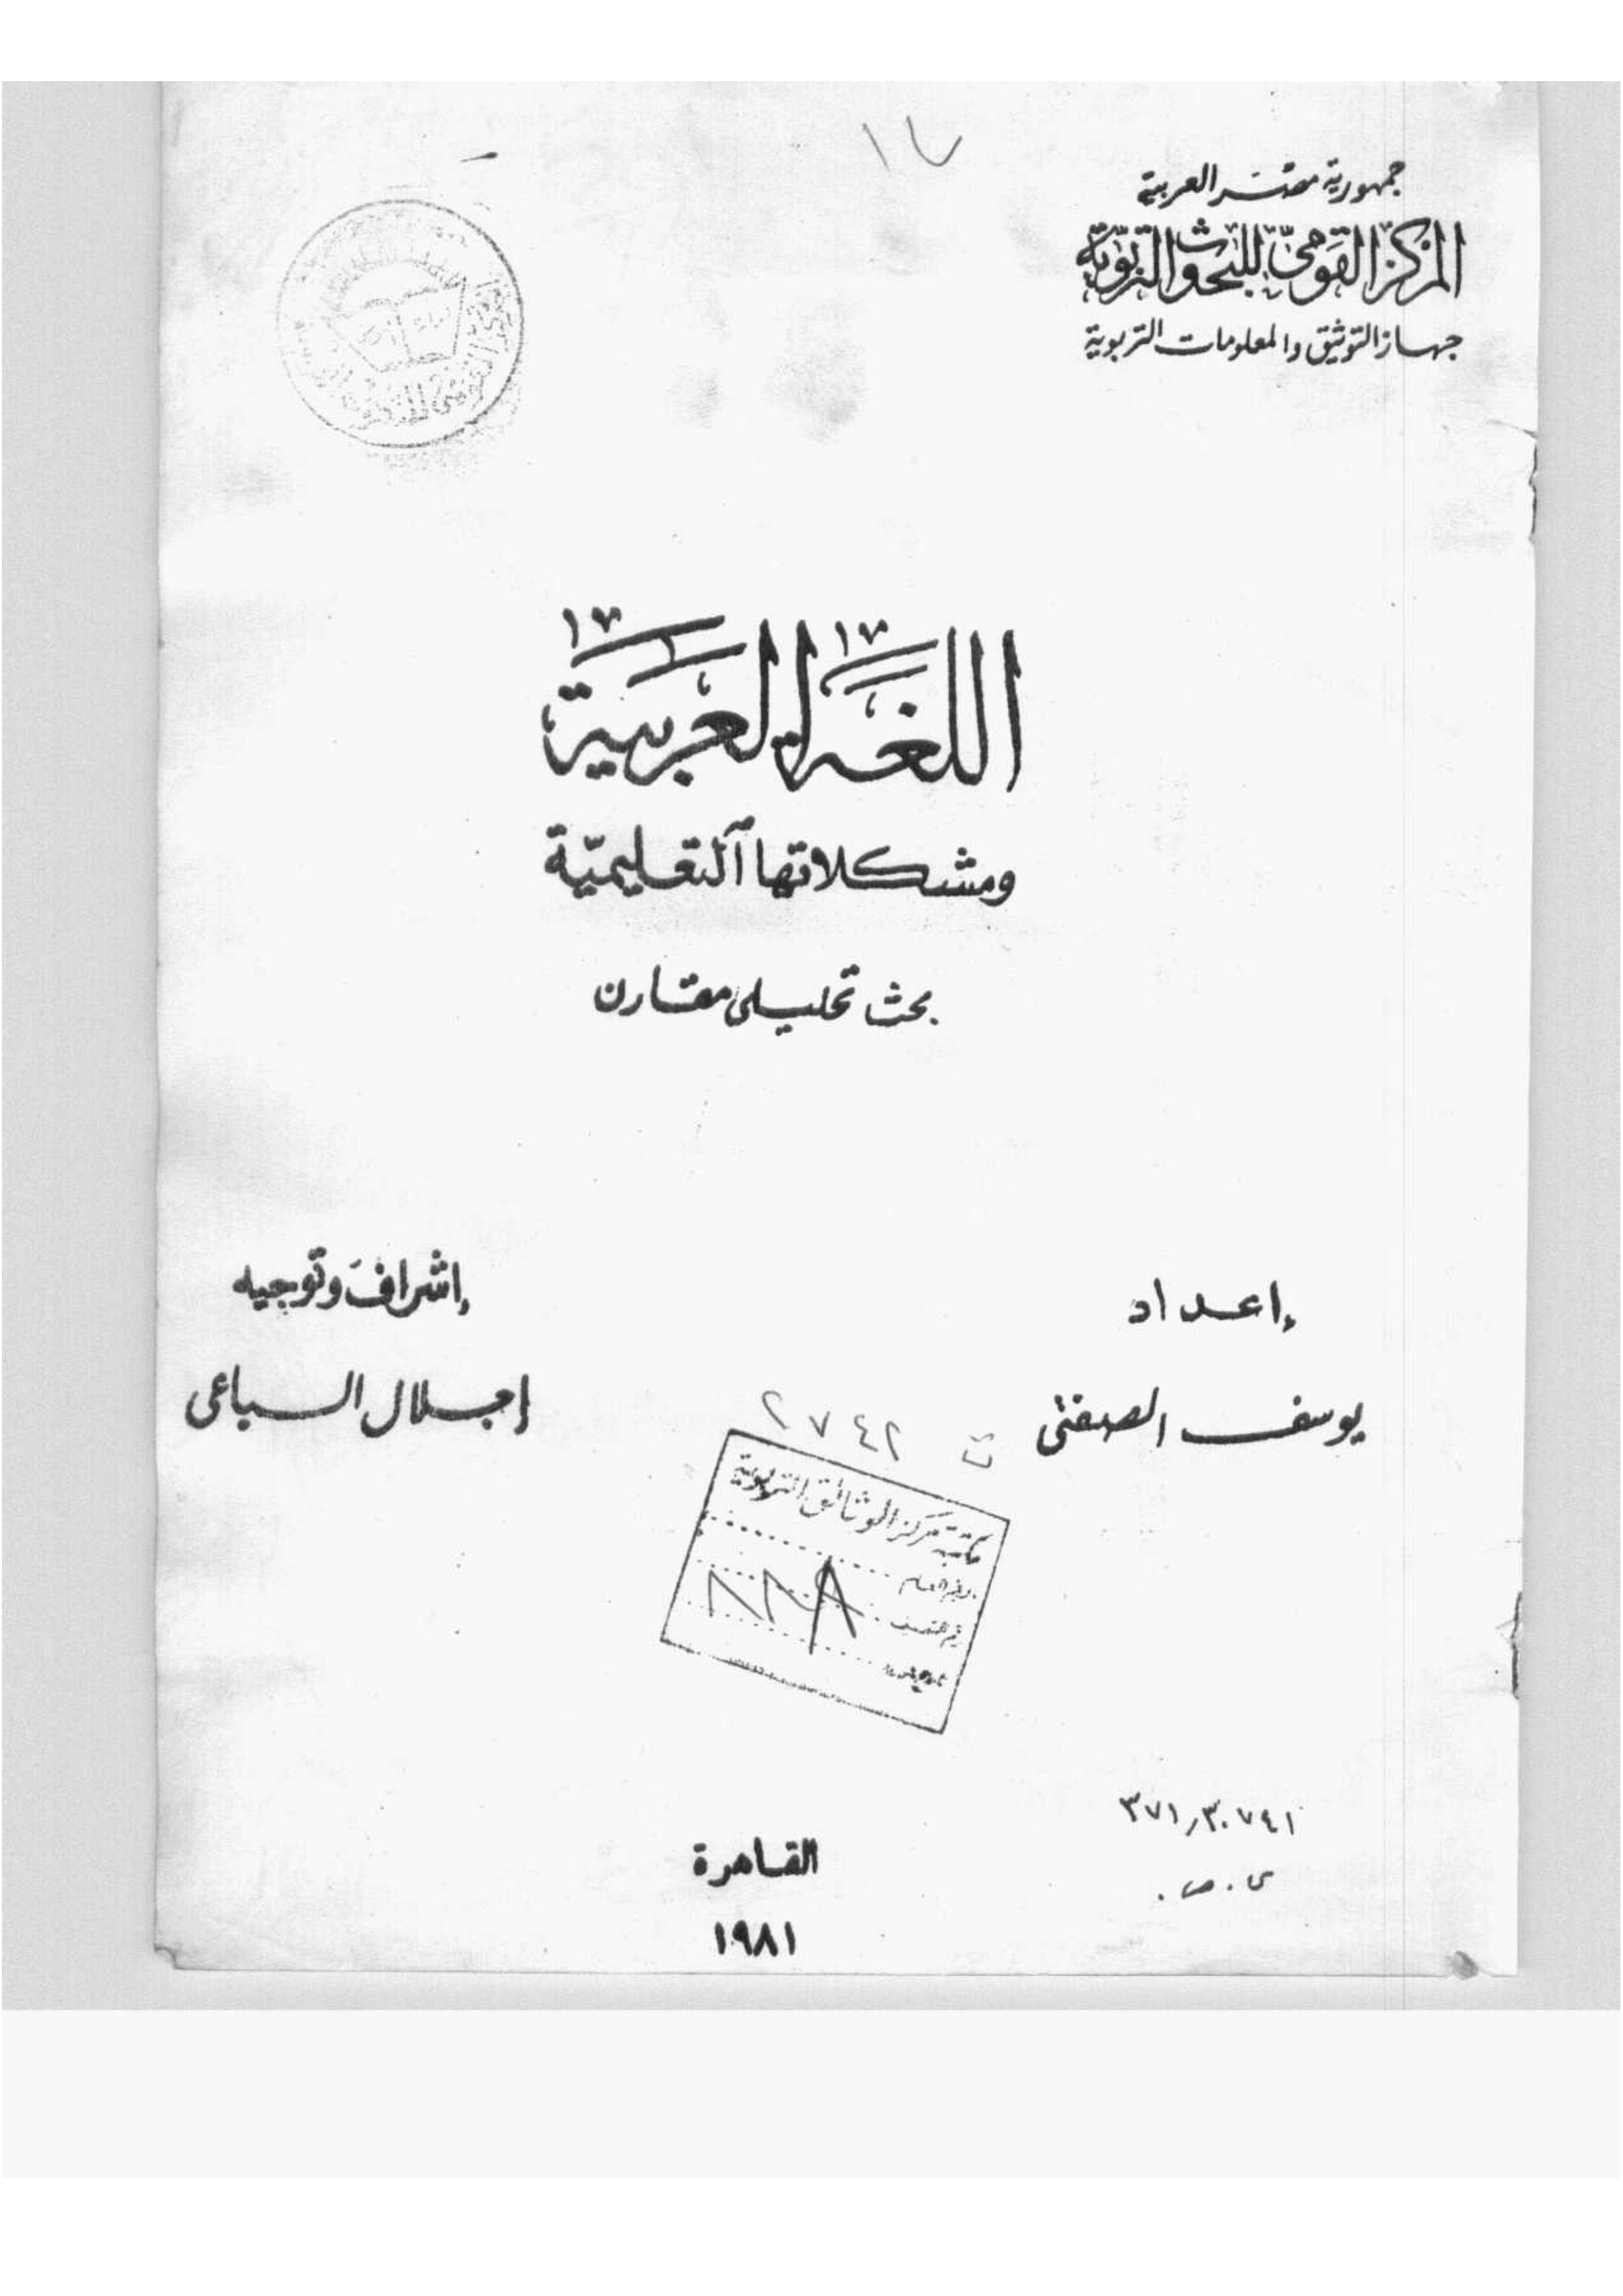 ١٧
جمهورية مصر العربية
المركز القومى للبحوث التربوية
جهاز التوثيق والمعلومات التربوية
اللغة العربية
ومشكلاتها التعليمية
بحث تحليلى مقارن
إعداد
يوسف الصفتى
إشراف وتوجيه
إجلال السباعى
ت ٢٧٤٢
مكتبة مركز الوثائق التربوية
٣٧١,٣٠٧٤١
ى . ص .
القاهرة
١٩٨١